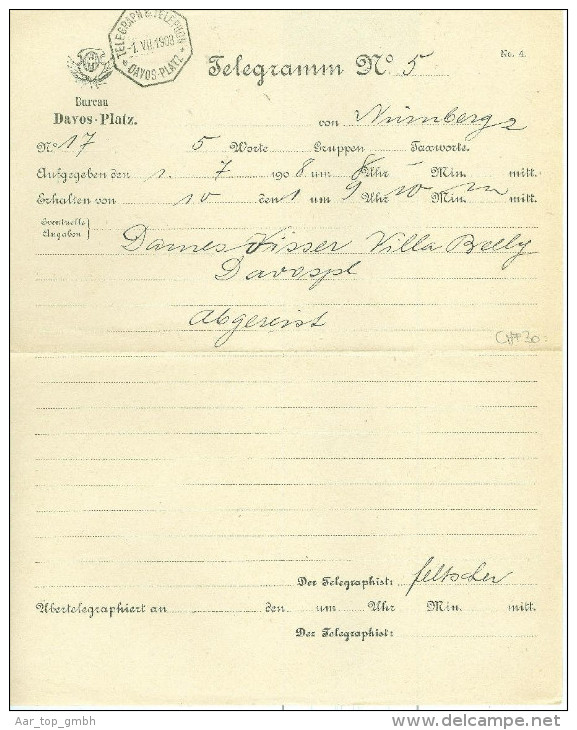 TELEGRAPH & TELEPHON
-1.VII.1908
* DAVOS-PLATZ *
Telegramm No. 5
No. 4.
Bureau
Davos-Platz.
von Nürnberg 2
No 17 5 Worte Gruppen Taxworte.
Aufgegeben den 1. 7 1908 um 8 Uhr Min. mitt.
Erhalten von 10 den 1 um 9 Uhr 10 Min. m mitt.
Eventuelle
Angaben
Dames Visser Villa Beely
Davospl
Abgereist
CHF 30.-
Der Telegraphist: feltscher
Übertelegraphiert an den um Uhr Min. mitt.
Der Telegraphist:
Aar_top_gmbh
www.delcampe.net